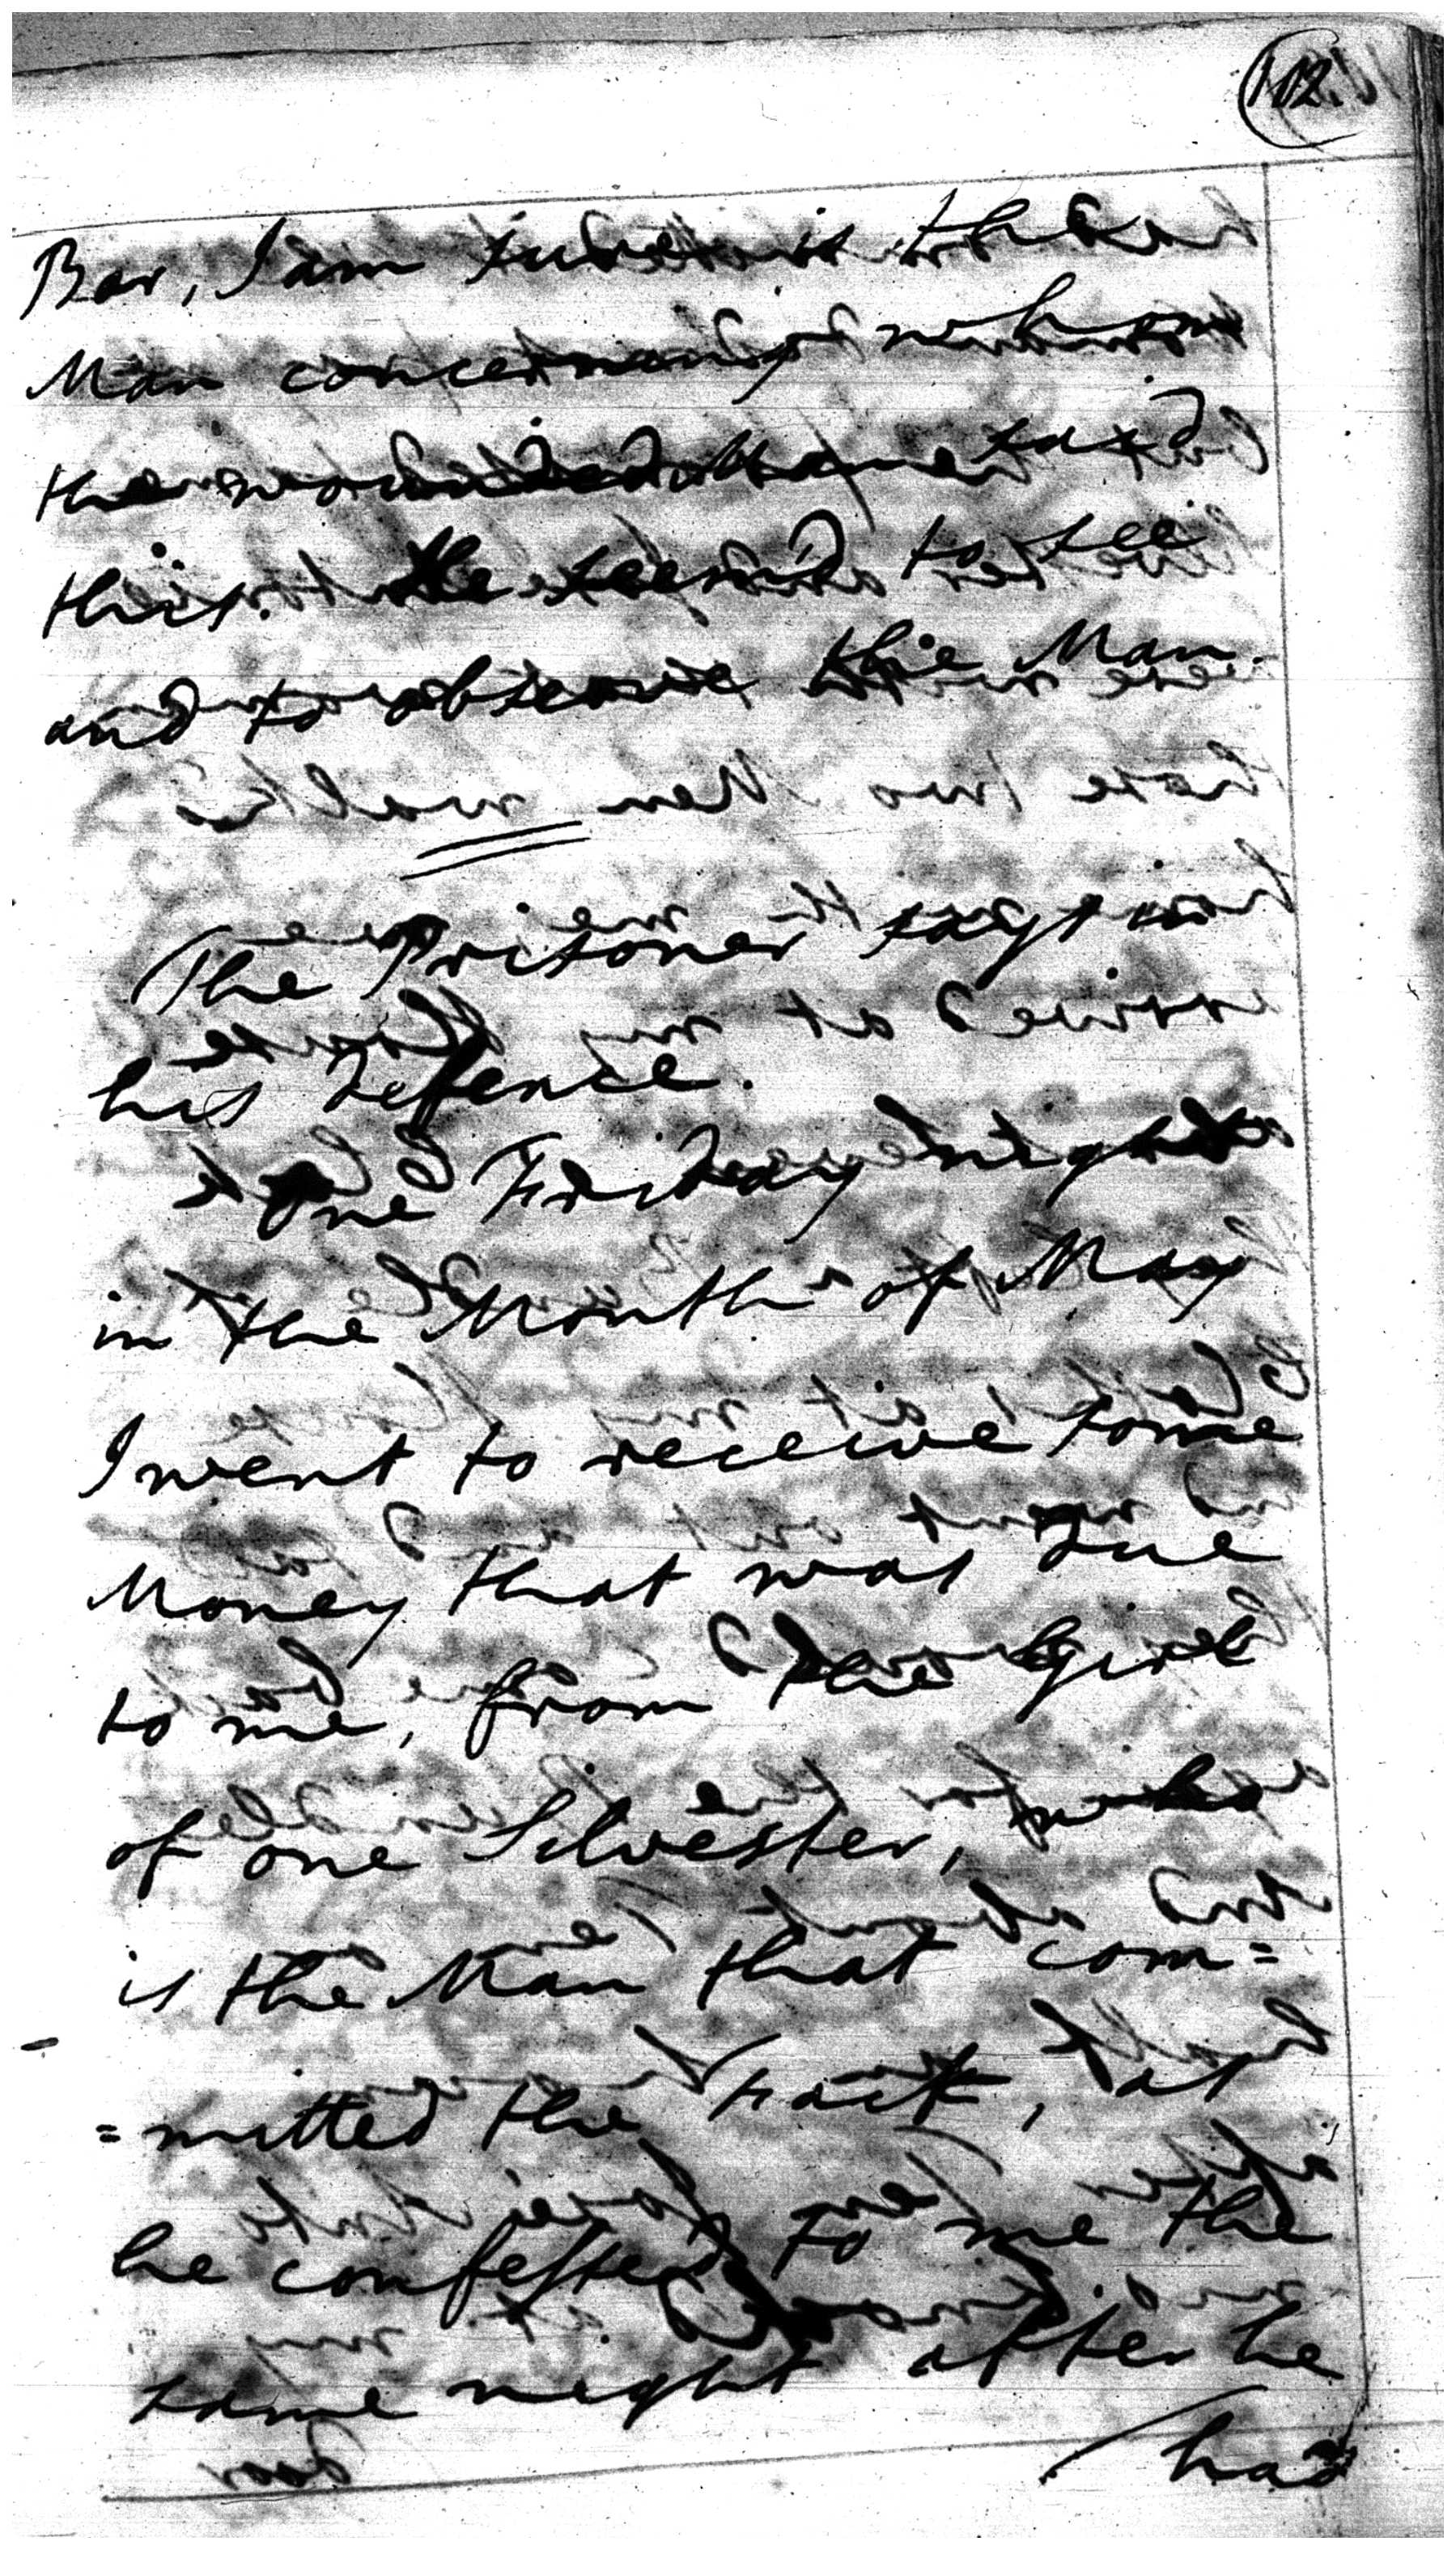 102.
Bar, I am sure is the
Man concerning whom
the wounded Man said
this. He seem'd to see
and to observe this Man.
The Prisoner says in
his defence.
One Friday night
in the Month of May
I went to receive some
Money that was due
to me, from the Girl
of one Silvester, who
is the Man that com=
=mitted the Fact, as
he confessed to me the
same night after he
had